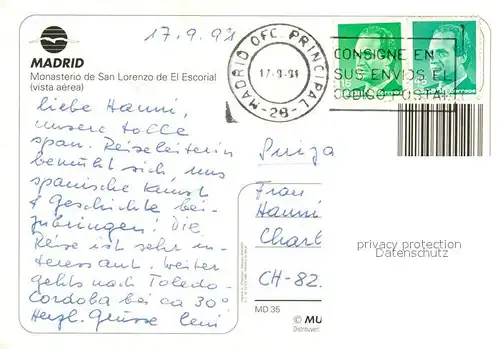 17.9.91
MADRID
Monasterio de San Lorenzo de El Escorial
(vista aérea)
MADRID OFC. PRINCIPAL
17-9-91
-28-
CONSIGNE EN
SUS ENVIOS EL
CODIGO POSTAL
liebe Hanni,
unsere tolle
span. Reiseleiterin
bemüht sich, uns
spanische Kunst
& Geschichte bei-
zubringen! Die
Reise ist sehr in-
teressant. Weiter
gehts nach Toledo-
Cordoba bei ca 30°
Herzl. Grüsse Leni
Suiza
Frau
Hanni
Charl
CH-82.
privacy protection
Datenschutz
MD 35
© MU
Distribuye